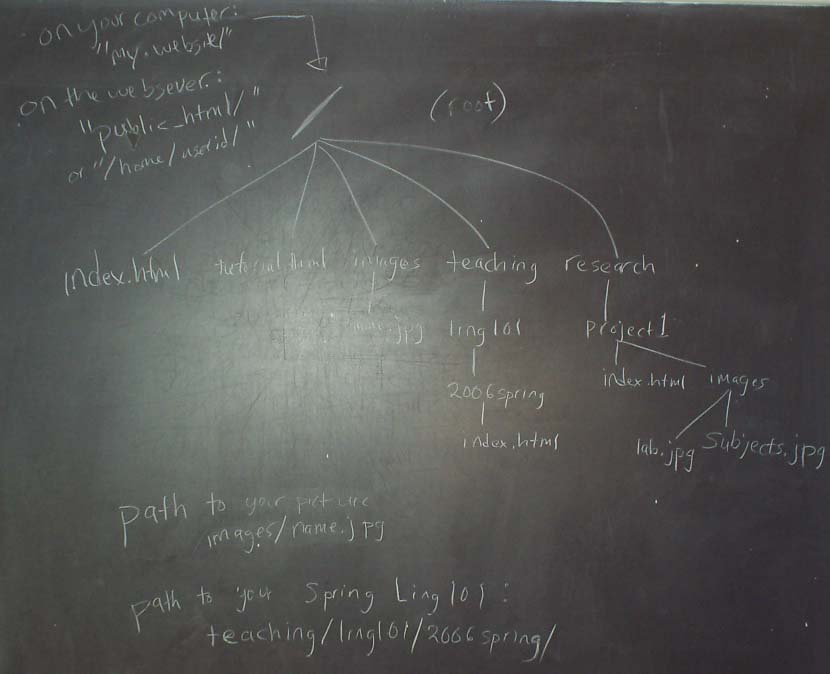 on your computer:
"my.website/"
on the websever:
"public_html/"
or "/home/userid/"
/
(root)
index.html tutorial.html images teaching research
.jpg ling101 project1
2006spring index.html images
index.html lab.jpg subjects.jpg
path to your picture
images/name.jpg
path to your Spring Ling 101:
teaching/ling101/2006spring/